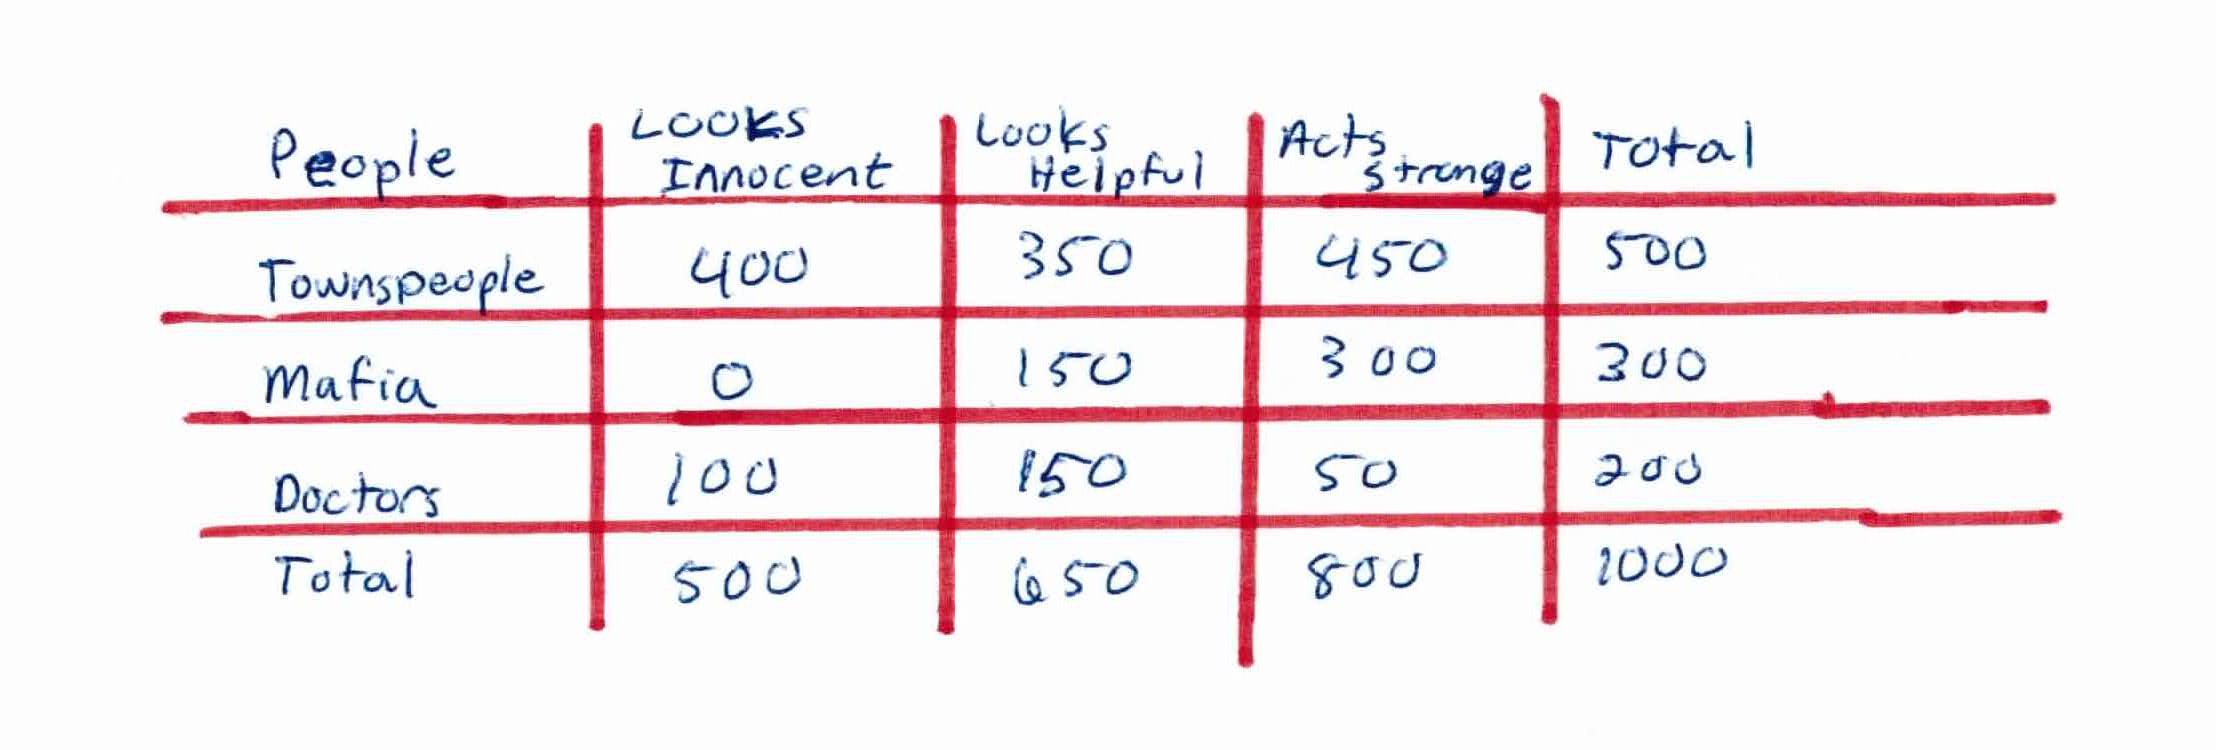 People Looks Innocent Looks Helpful Acts Strange Total
Townspeople 400 350 450 500
Mafia 0 150 300 300
Doctors 100 150 50 200
Total 500 650 800 1000